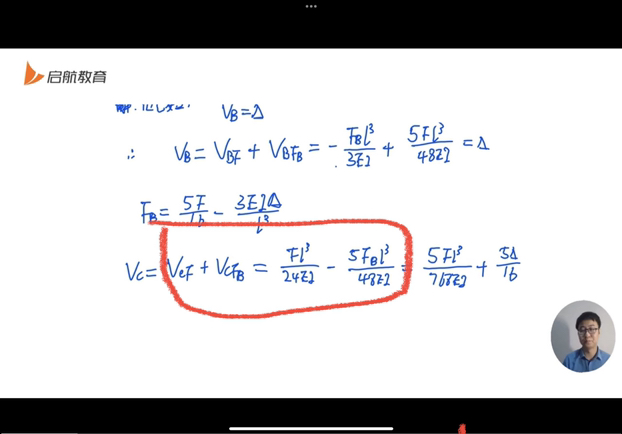 启航教育
V_B=Δ
∴ V_B = V_BF + V_BF_B = - F_B l³/3EI + 5Fl³/48EI = Δ
F_B = 5F/16 - 3EIΔ/l³
V_C = V_CF + V_CF_B = Fl³/24EI - 5F_B l³/48EI = 5Fl³/768EI + 5Δ/16